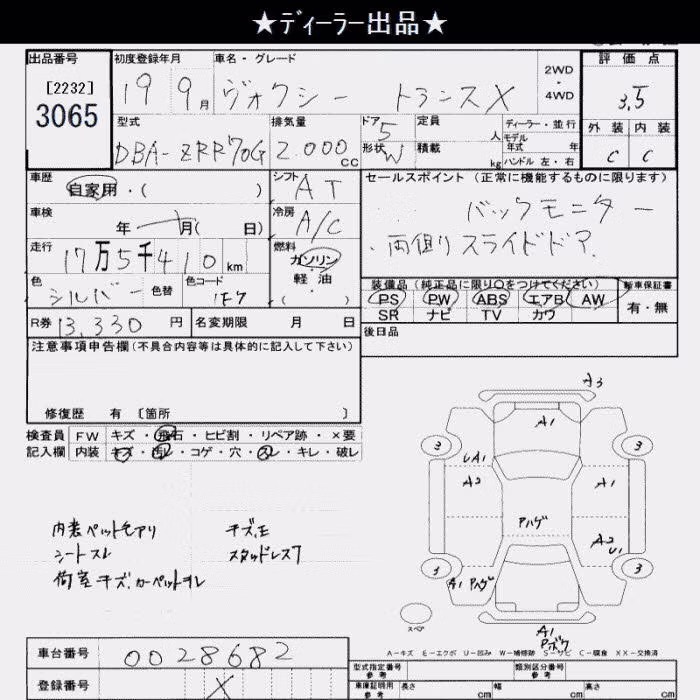 ★ディーラー出品★
出品番号 初度登録年月 車名・グレード 2WD・4WD 評価点
[2232] 3065
19 9月 ヴォクシー トランスX 3.5
型式 排気量 ドア 5 定員 人 ディーラー・並行 外装 内装
DBA-ZRR70G 2.000cc 形状 W 積載 kg モデル年式 年 ハンドル 左・右 C C
車歴 自家用・( ) シフト AT セールスポイント (正常に機能するものに限ります)
車検 年 月( 日) 冷房 A/C バックモニター
走行 17万5千410km 燃料 ガソリン 軽油 ( ) ・両側リスライドドア.
色 シルバー 色替 色コード 1F7 装備品 (純正品に限り○をつけてください) 新車保証書
PS PW ABS エアB AW 有・無
R券 13,330円 名変期限 月 日 SR ナビ TV カワ
後日品
注意事項申告欄 (不具合内容等は具体的に記入して下さい)
修復歴 有 [箇所 ]
検査員 FW キズ・飛石・ヒビ割・リペア跡・×要
記入欄 内装 キズ・汚レ・コゲ・穴・スレ・キレ・破レ
A3
A1
3 3
UA1
A2 A1
Aハゲ
A2 U1
3 3
A1 Aハゲ
内装ペットモアリ キズ.モ
シートスレ スタッドレス7
荷室キズ.カーペットヨレ
スペア
A1
Aボク
A-キズ E-エクボ U-凹み W-補修跡 S-サビ C-腐食 XX-交換済
車台番号 0028682
登録番号 X
型式指定番号 参考 類別区分番号 参考
車庫証明用 参考 長さ cm 幅 cm 高さ cm